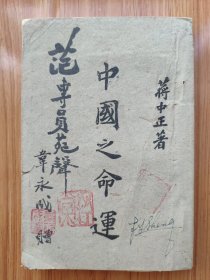 蔣中正著
中國之命運
范專員苑聲
韋永成贈